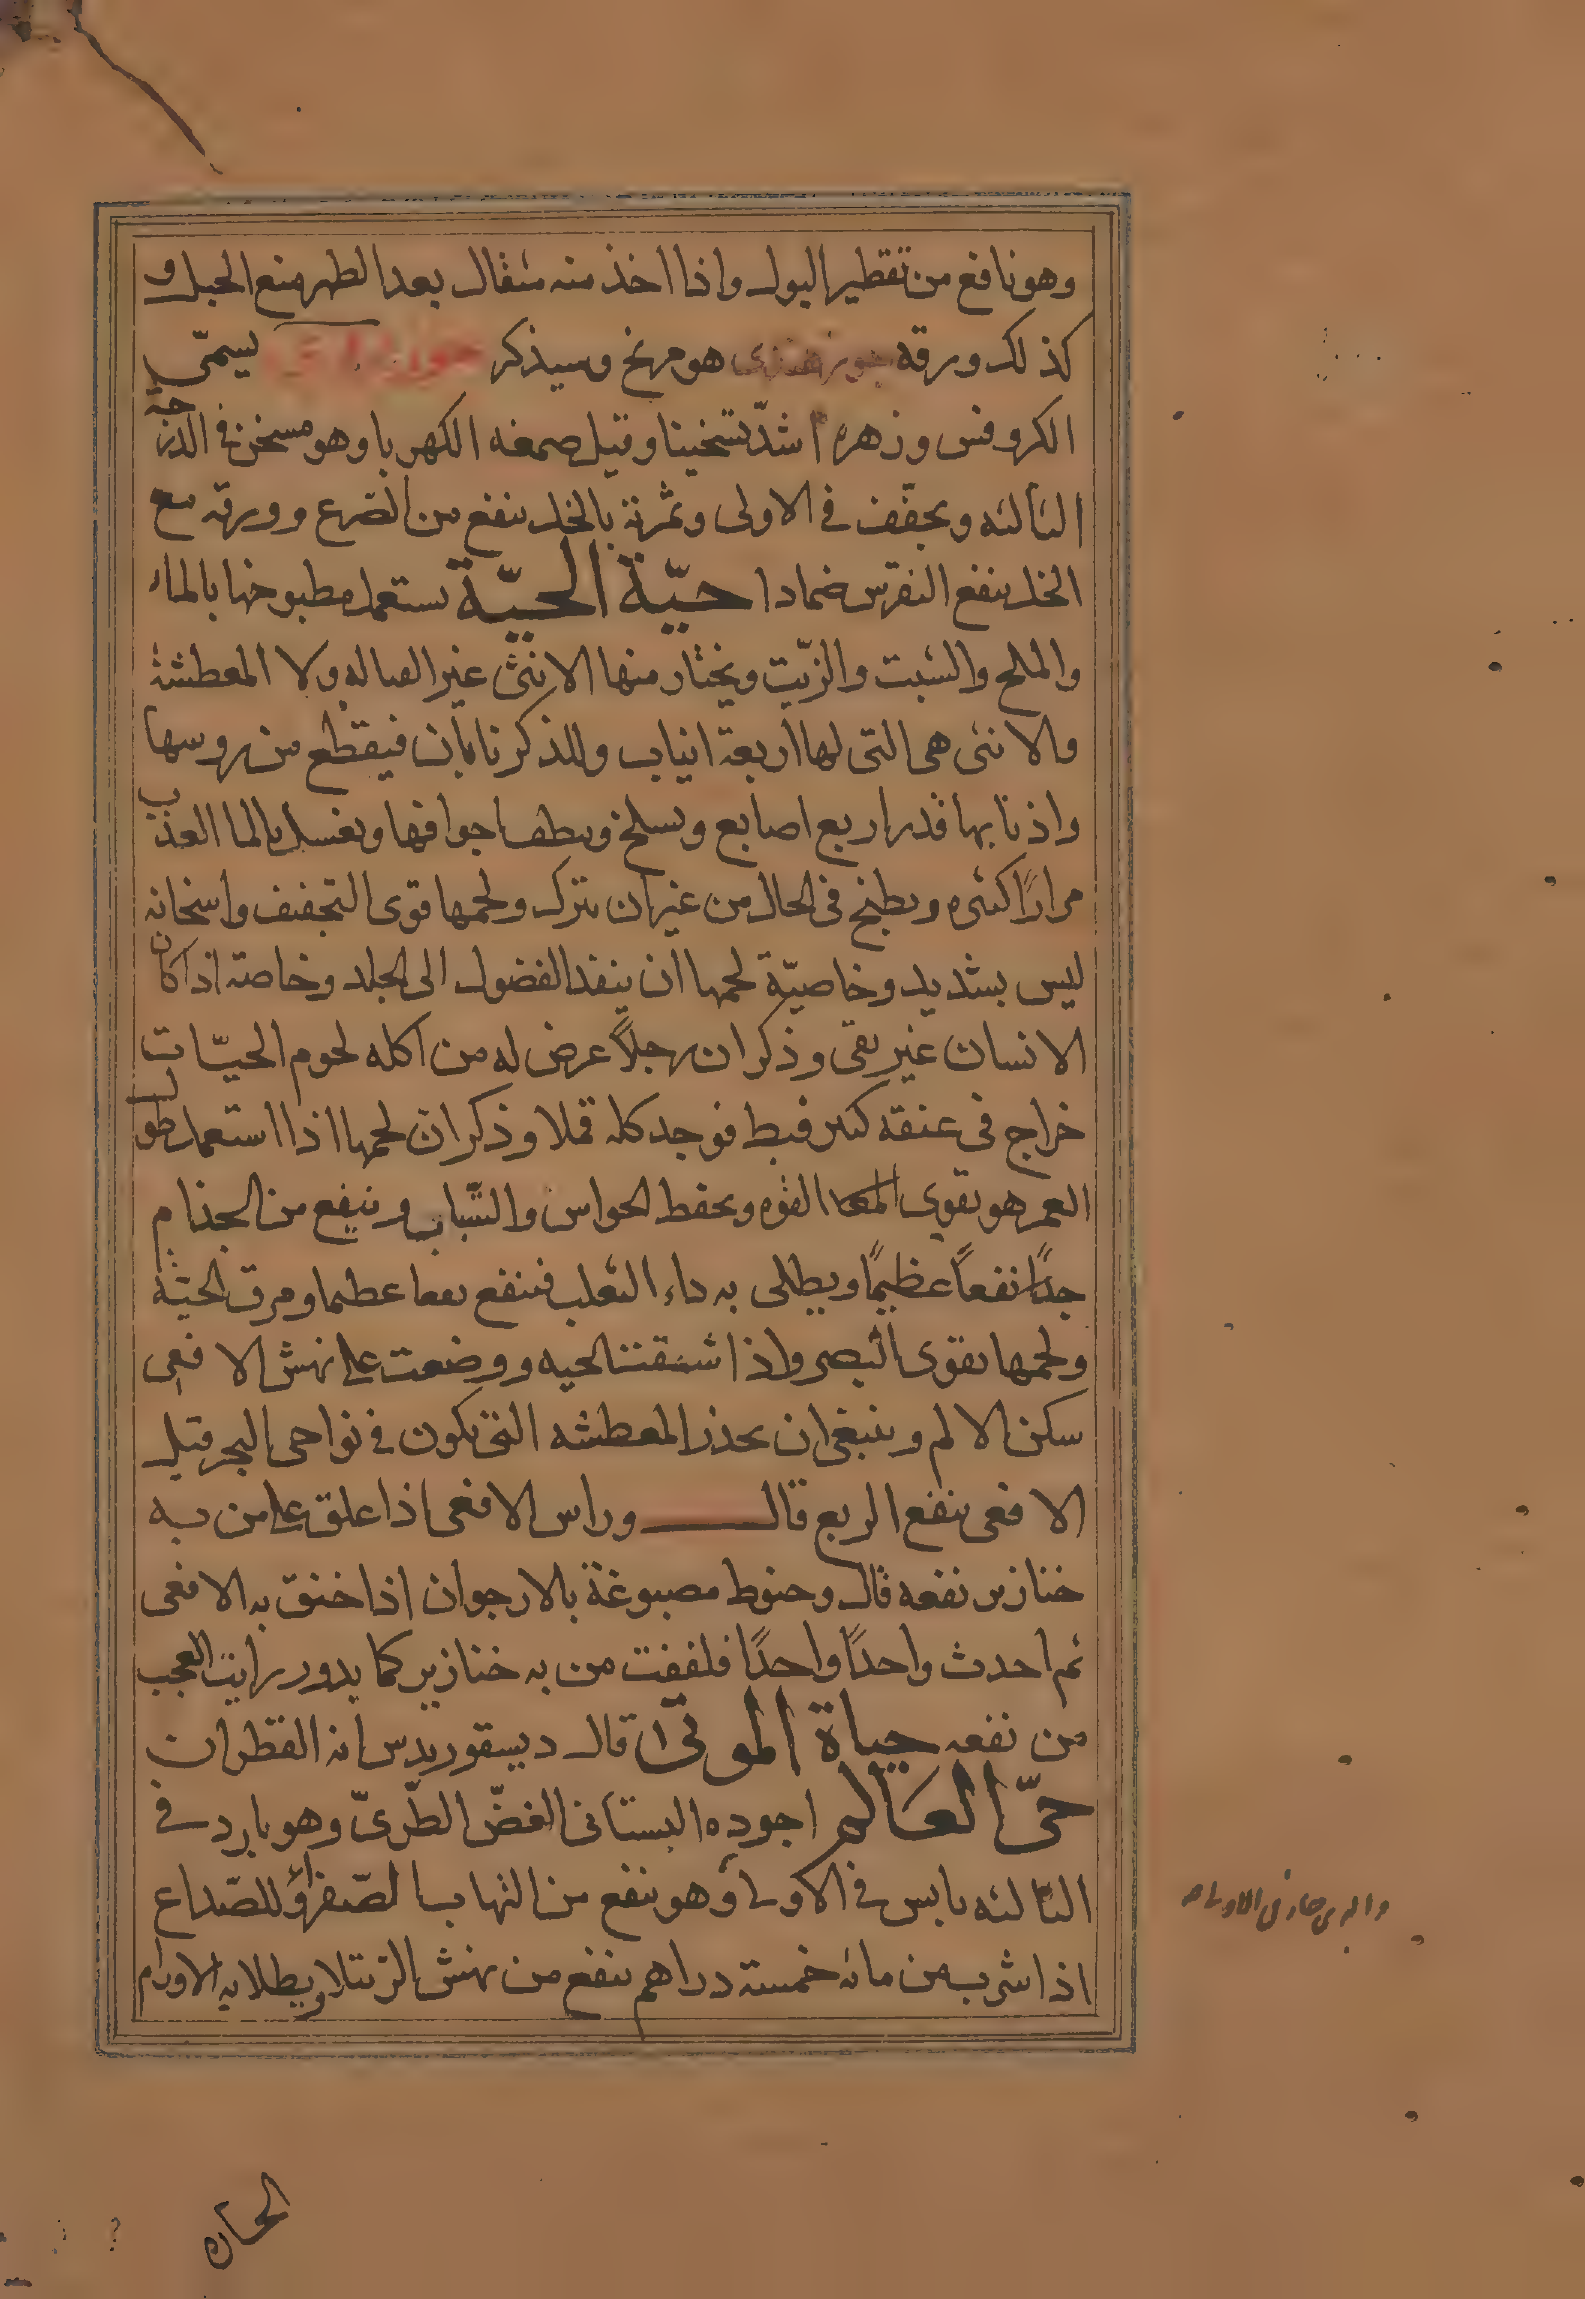 وهو نافع من تقطير البول واذا اخذ منه مثقال بعد الطهر منع الحبل و
كذلك ورقه جوز هندى هو مرنج وسيذكر يسمّى
الكروفس وزهره اشدّ تسخينا وقيل صمغه الكهربا وهو مسخن فى الدرجة
الثالثه ويجفّف فى الاولى وثمرته بالخل ينفع من الصرع وورقه مع
الخل ينفع النقرس ضمادا حيّة الحيّة يستعمل مطبوخها بالماء
والملح والشبت والزّيت ويختار منها الانثى غير العباله ولا المعطشة
والانثى هى التى لها اربعة انياب وللذكر نابان فيقطع من روسها
واذنابها قدر اربع اصابع ويسلخ وينظف اجوافها ويغسل بالما العذب
مرارًا كثيره ويطبخ فى الحال من غير ان يترك ولحمها قوى التجفيف واسخانه
ليس بشديد وخاصيّة لحمها ان ينفد الفضول الى الجلد وخاصة اذا كان
الانسان غير نقى وذكر ان رجلاً عرض له من اكله لحوم الحيّات
خراج فى عنقه كبير فبط فوجد كله قملا وذكر ان لحمها اذا استعمل طول
العمر هو يقوى القوه ويحفظ الحواس والشّباب وينفع من الجذام
جدًا نفعاً عظيمًا ويطلى به داء الثعلب فينفع نفعا عظيما ومرق الحيّة
ولحمها يقوى البصر واذا شققت الحيه ووضعت على نهش الافعى
سكن الالم وينبغى ان يحذر المعطشه التى تكون فى نواحى البحر قيل
الافعى ينفع الربع قال وراس الافعى اذا علق على من به
خنازير نفعه قال وخيوط مصبوغة بالارجوان اذا خنق به الافعى
ثم احدث واحدًا واحدًا فلففت من به خنازير كما يدور رايت العجب
من نفعه حياة الموتى قال ديسقوريدس انه القطران
حىّ العالم اجوده البستانى الغضّ الطّرىّ وهو بارد فى
الثالثه يابس فى الاولى وهو ينفع من التهاب الصّفراؤ للصّداع
اذا شرب من مائه خمسة دراهم ينفع من نهش الرتيلا ويطلا به الاورام
والبرى حار فى الاولى